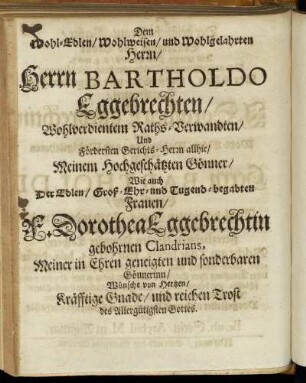 Dem
Wohl-Edlen/ Wohlweisen/ und Wohlgelahrten
Herrn/
Herrn BARTHOLDO
Eggebrechten/
Wohlverdientem Raths-Verwandten/
Und
Fördersten Gerichts-Herrn allhie/
Meinem Hochgeschätzten Gönner/
Wie auch
Der Edlen/ Groß-Ehr- und Tugend-begabten
Frauen/
F. Dorothea Eggebrechtin
gebohrnen Clandrians,
Meiner in Ehren geneigten und sonderbaren
Gönnerinn/
Wünsche von Hertzen/
Kräfftige Gnade/ und reichen Trost
des Allergütigsten Gottes.